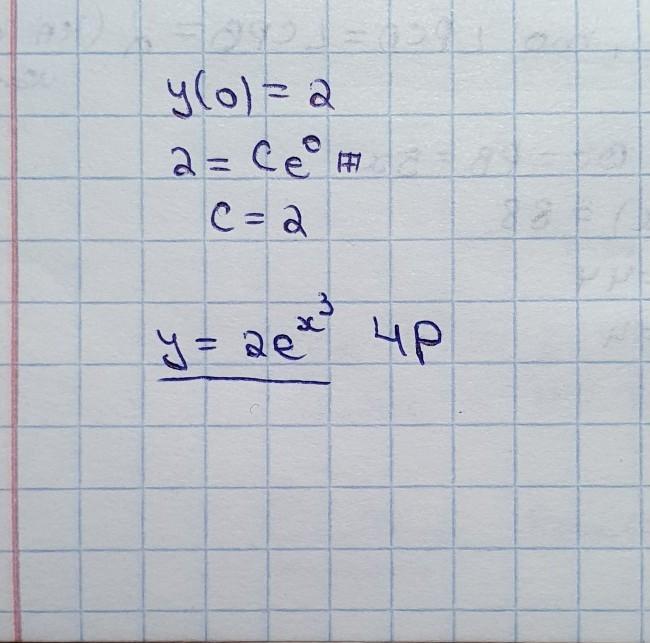 y(0) = 2
2 = Ce⁰
C = 2
y = 2e^x³ ЧР